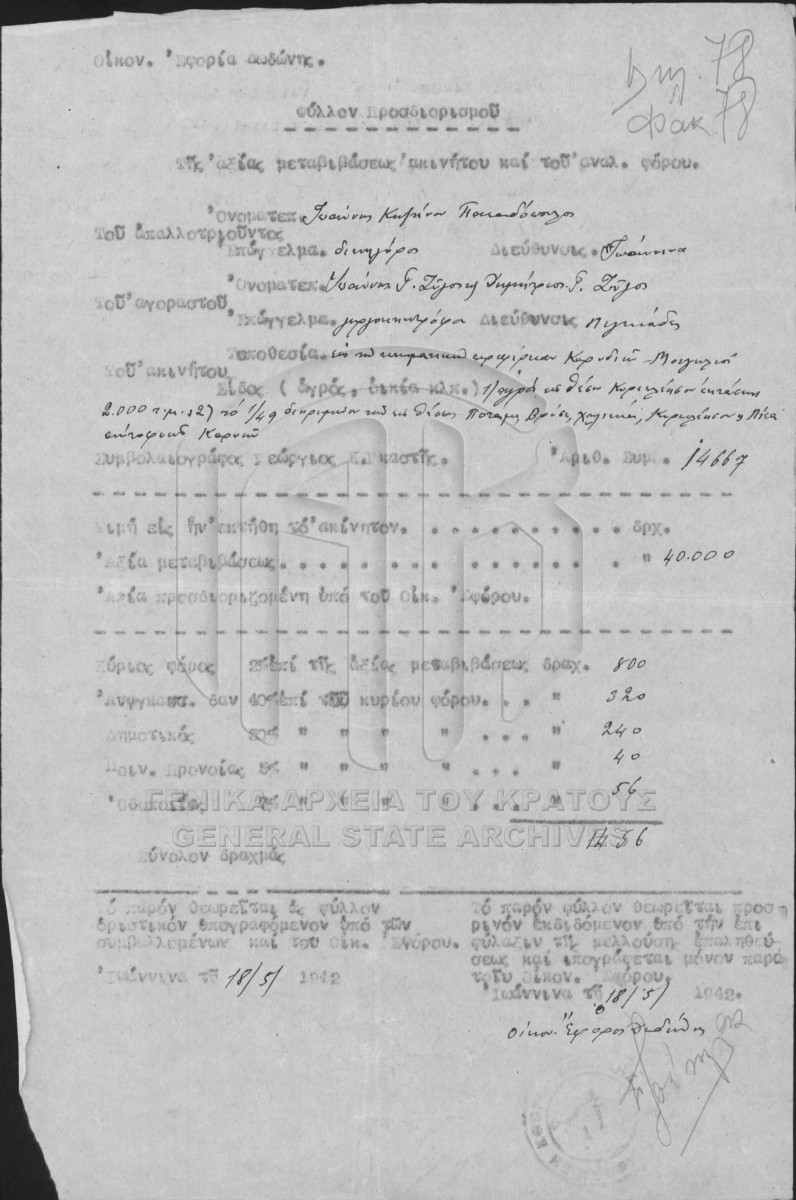 Οἰκον. Ἐφορία Δωδώνης.
78
Φακ 78
Φύλλον Προσδιορισμοῦ
Τῆς ἀξίας μεταβιβάσεως ἀκινήτου καί τοῦ ἀναλ. φόρου.
Ὀνοματεπ. Ἰωάννης
Τοῦ ἀπαλλοτριοῦντος
Ἐπάγγελμα. δικηγόρος Διεύθυνσις. Ἰωάννινα
Ὀνοματεπ. Ἰωάννης Γ. Ζῆλος Δημήτριος Γ. Ζῆλος
Τοῦ ἀγοραστοῦ
Ἐπάγγελμα. Διεύθυνσις
Τοποθεσία. εἰς τήν κτηματικήν περιφέρειαν
Τοῦ ἀκινήτου
Εἶδος ( ἀγρός, οἰκία κλπ.) 1) ἀγρός εἰς θέσιν ἐκτάσεως
2.000 τ.μ. 2) τό 1/49
Συμβολαιογράφος Γεώργιος Κ.Γκαστῆς. Ἀριθ. Συμ. 14667
Τιμή εἰς ἥν ἐκτήθη τό ἀκίνητον. . . . . . . . . . . δρχ.
Ἀξία μεταβιβάσεως. . . . . . . . . . . . . . . " 40.000
Ἀξία προσδιοριζομένη ὑπό τοῦ Οἰκ. Ἐφόρου.
Κύριος φόρος 2% ἐπί τῆς ἀξίας μεταβιβάσεως δραχ. 800
δαν 40% ἐπί τοῦ κυρίου φόρου. . . " 320
Δημοτικός 30% " " " " . . . . " 240
Κοιν. Προνοίας 5% " " " " . . . " 40
Ὁδοποιίας 7% " " " " . . . " 56
ΓΕΝΙΚΑ ΑΡΧΕΙΑ ΤΟΥ ΚΡΑΤΟΥΣ
GENERAL STATE ARCHIVES
1456
Σύνολον δραχμάς
Τό παρόν θεωρεῖται ὡς φύλλον
ὁριστικόν ὑπογραφόμενον ὑπό τῶν
συμβαλλομένων καί τοῦ Οἰκ. Ἐφόρου.
Ἰωάννινα τῇ 18/5/ 1942
Τό παρόν φύλλον θεωρεῖται προσ
ρινόν ἐκδιδόμενον ὑπό τήν ἐπι
φύλαξιν τῆς μελλούσης ἐπαληθεύ
σεως καί ὑπογράφεται μόνον παρά
τοῦ Οἰκον. Ἐφόρου.
Ἰωάννινα τῇ 18/5/ 1942.
Ὁ
Οἰκον. Ἔφορος Δωδώνης